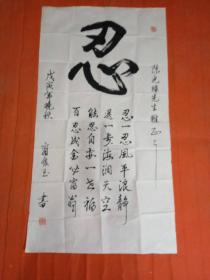 陈光辉先生雅正
忍
忍一忍风平浪静
退一步海阔天空
能忍自安一世福
百忍成金必富
戊寅年晚秋
书